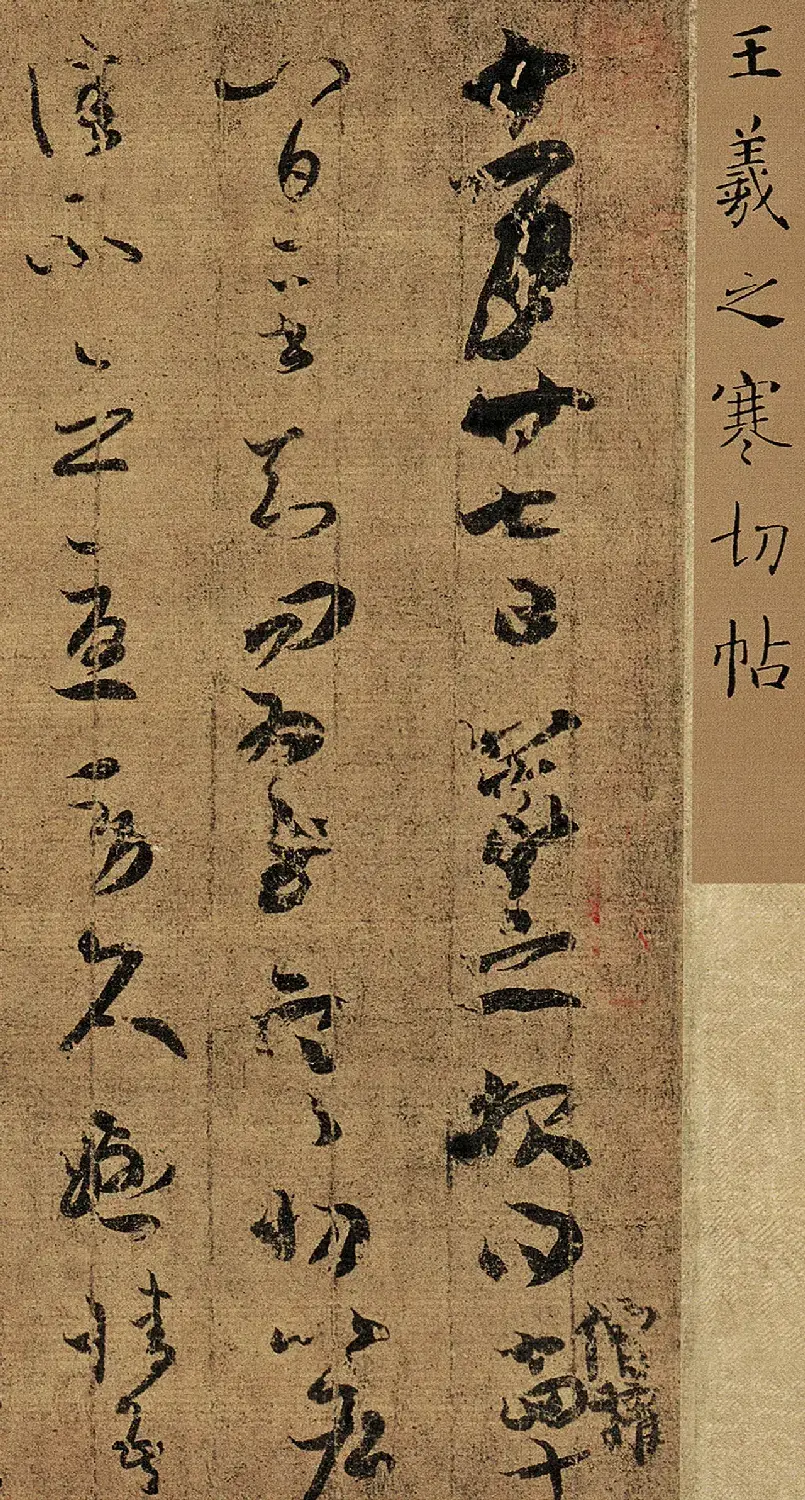 王羲之寒切帖
十一月廿七日羲之報得十四十
僧權
八日二書知問爲慰寒切比各
佳不念憂勞久懸情吾